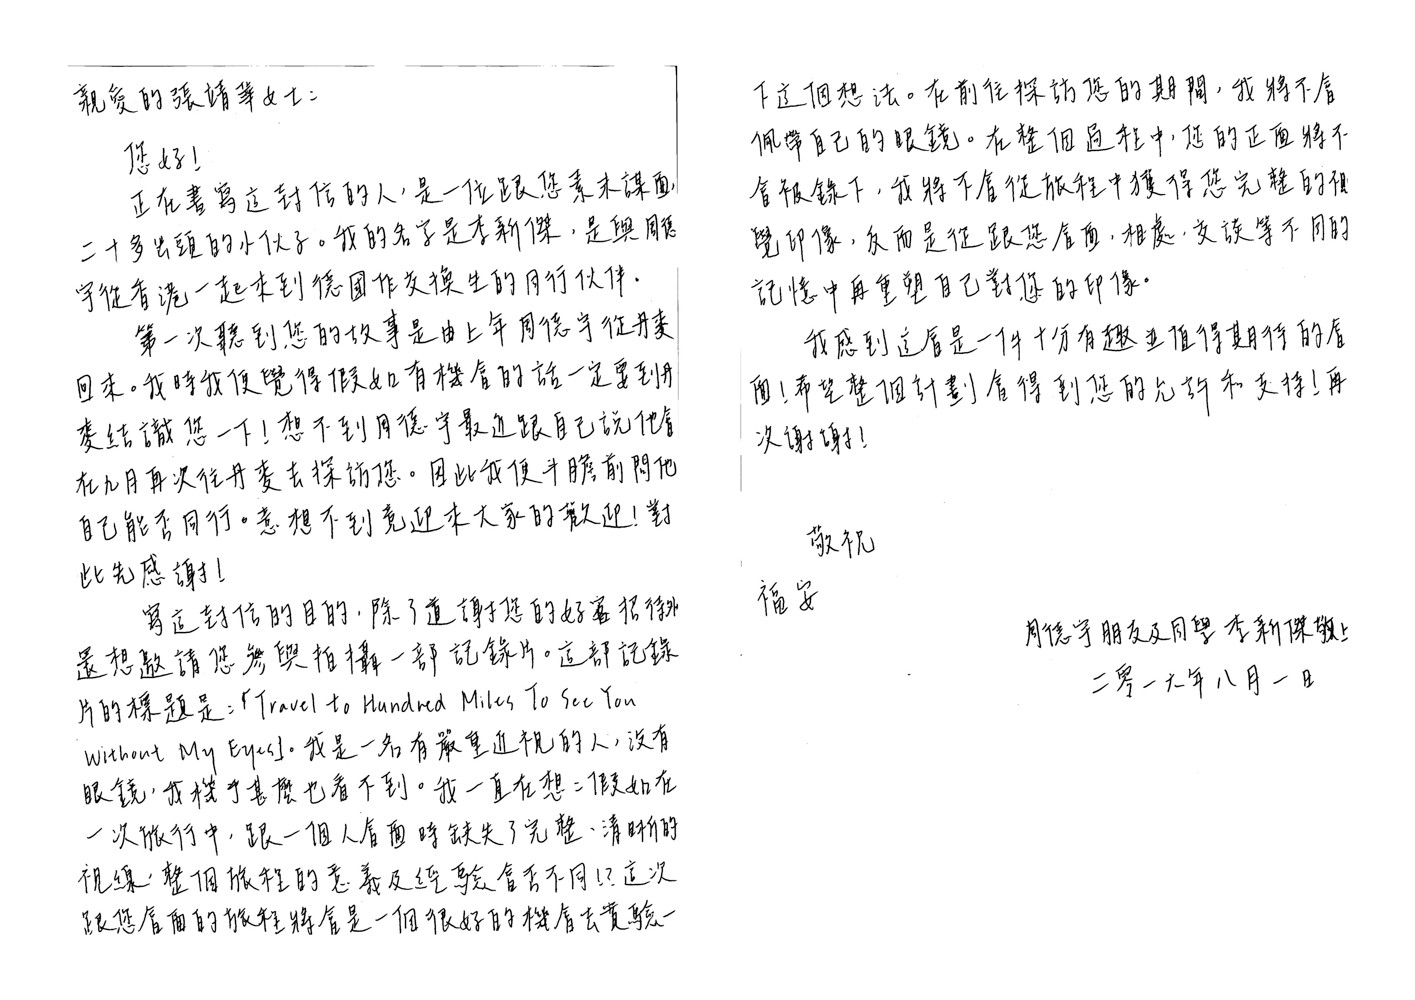 親愛的張靖華女士：
您好！
正在書寫這封信的人，是一位跟您素未謀面
二十多出頭的小伙子。我的名字是李新傑，是與周德
宇從香港一起來到德國作交換生的同行伙伴．
第一次聽到您的故事是由上年周德宇從丹麥
回來。我時我便覺得假如有機會的話一定要到丹
麥結識您一下！想不到周德宇最近跟自己說他會
在九月再次往丹麥去探訪您。因此我便斗膽前問他
自己能否同行。意想不到竟迎來大家的歡迎！對
此先感謝！
寫這封信的目的，除了道謝您的好客招待外
還想邀請您參與拍攝一部記錄片。這部記錄
片的標題是：「Travel to Hundred Miles To See You
Without My Eyes」。我是一名有嚴重近視的人，沒有
眼鏡，我幾乎甚麼也看不到。我一直在想：假如在
一次旅行中，跟一個人會面時缺失了完整、清晰的
視線，整個旅程的意義及經驗會否不同！？這次
跟您會面的旅程將會是一個很好的機會去實驗一
下這個想法。在前往探訪您的期間，我將不會
佩帶自己的眼鏡。在整個過程中，您的正面將不
會被錄下，我將不會從旅程中獲得您完整的視
覺印像，反而是從跟您會面，相處，交談等不同的
記憶中再重塑自己對您的印像。
我感到這會是一件十分有趣並值得期待的會
面！希望整個計劃會得到您的允許和支持！再
次謝謝！
敬祝
福安
周德宇朋友及同學 李新傑敬上
二零一六年八月一日